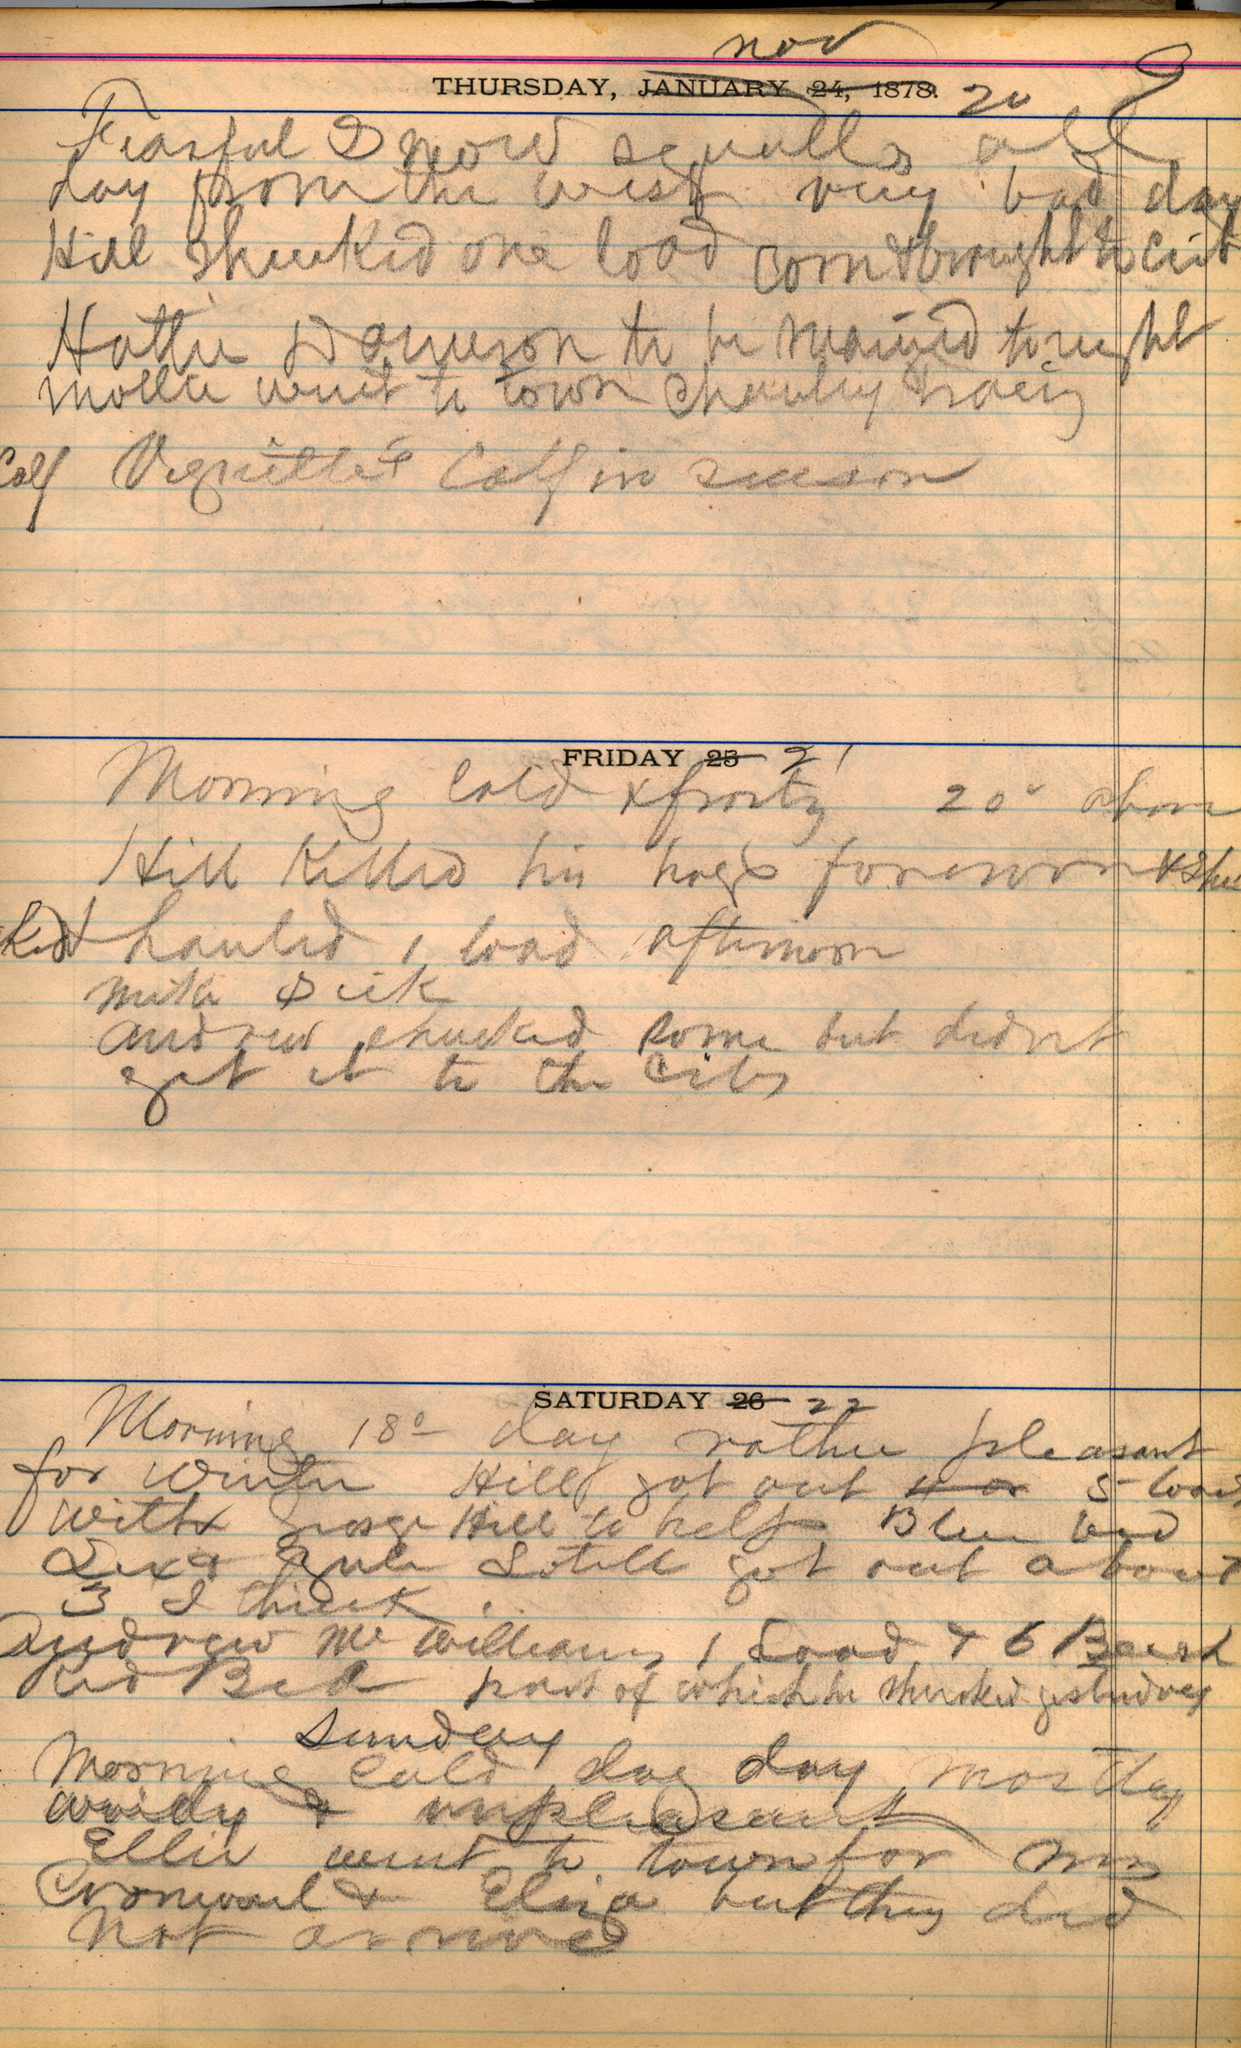 Nov
THURSDAY, JANUARY 24, 1878. 20
Fearful Snow squalls all
day from the west very bad day
Hill Shucked one load corn & brought to Crib
Hattie Dameron to be Maried tonight
Mollie went to town Charley Tracy
Calf Vignette's Calf in season
FRIDAY 25 21
Morning Cold & frosty 20° above
Hill Killed his hogs forenoon & Shu
cked & hauled 1 load afternoon
Mike Sick
Andrew shucked some but didnt
get it to the Cribs
SATURDAY 26 22
Morning 18° day rather pleasant
for Winter Hill got out 4 or 5 loads
With George Hill to help Blue bed
Dex & Still got out about
3 I think.
Andrew McWilliams 1 Load & 6 Bush
Red Bed part of which he shucked yesterday
Sunday
Morning Cold day day mostly
windy & unpleasant
Ellie went to town for Mrs
Cromwell & Eliza but they did
Not arrive